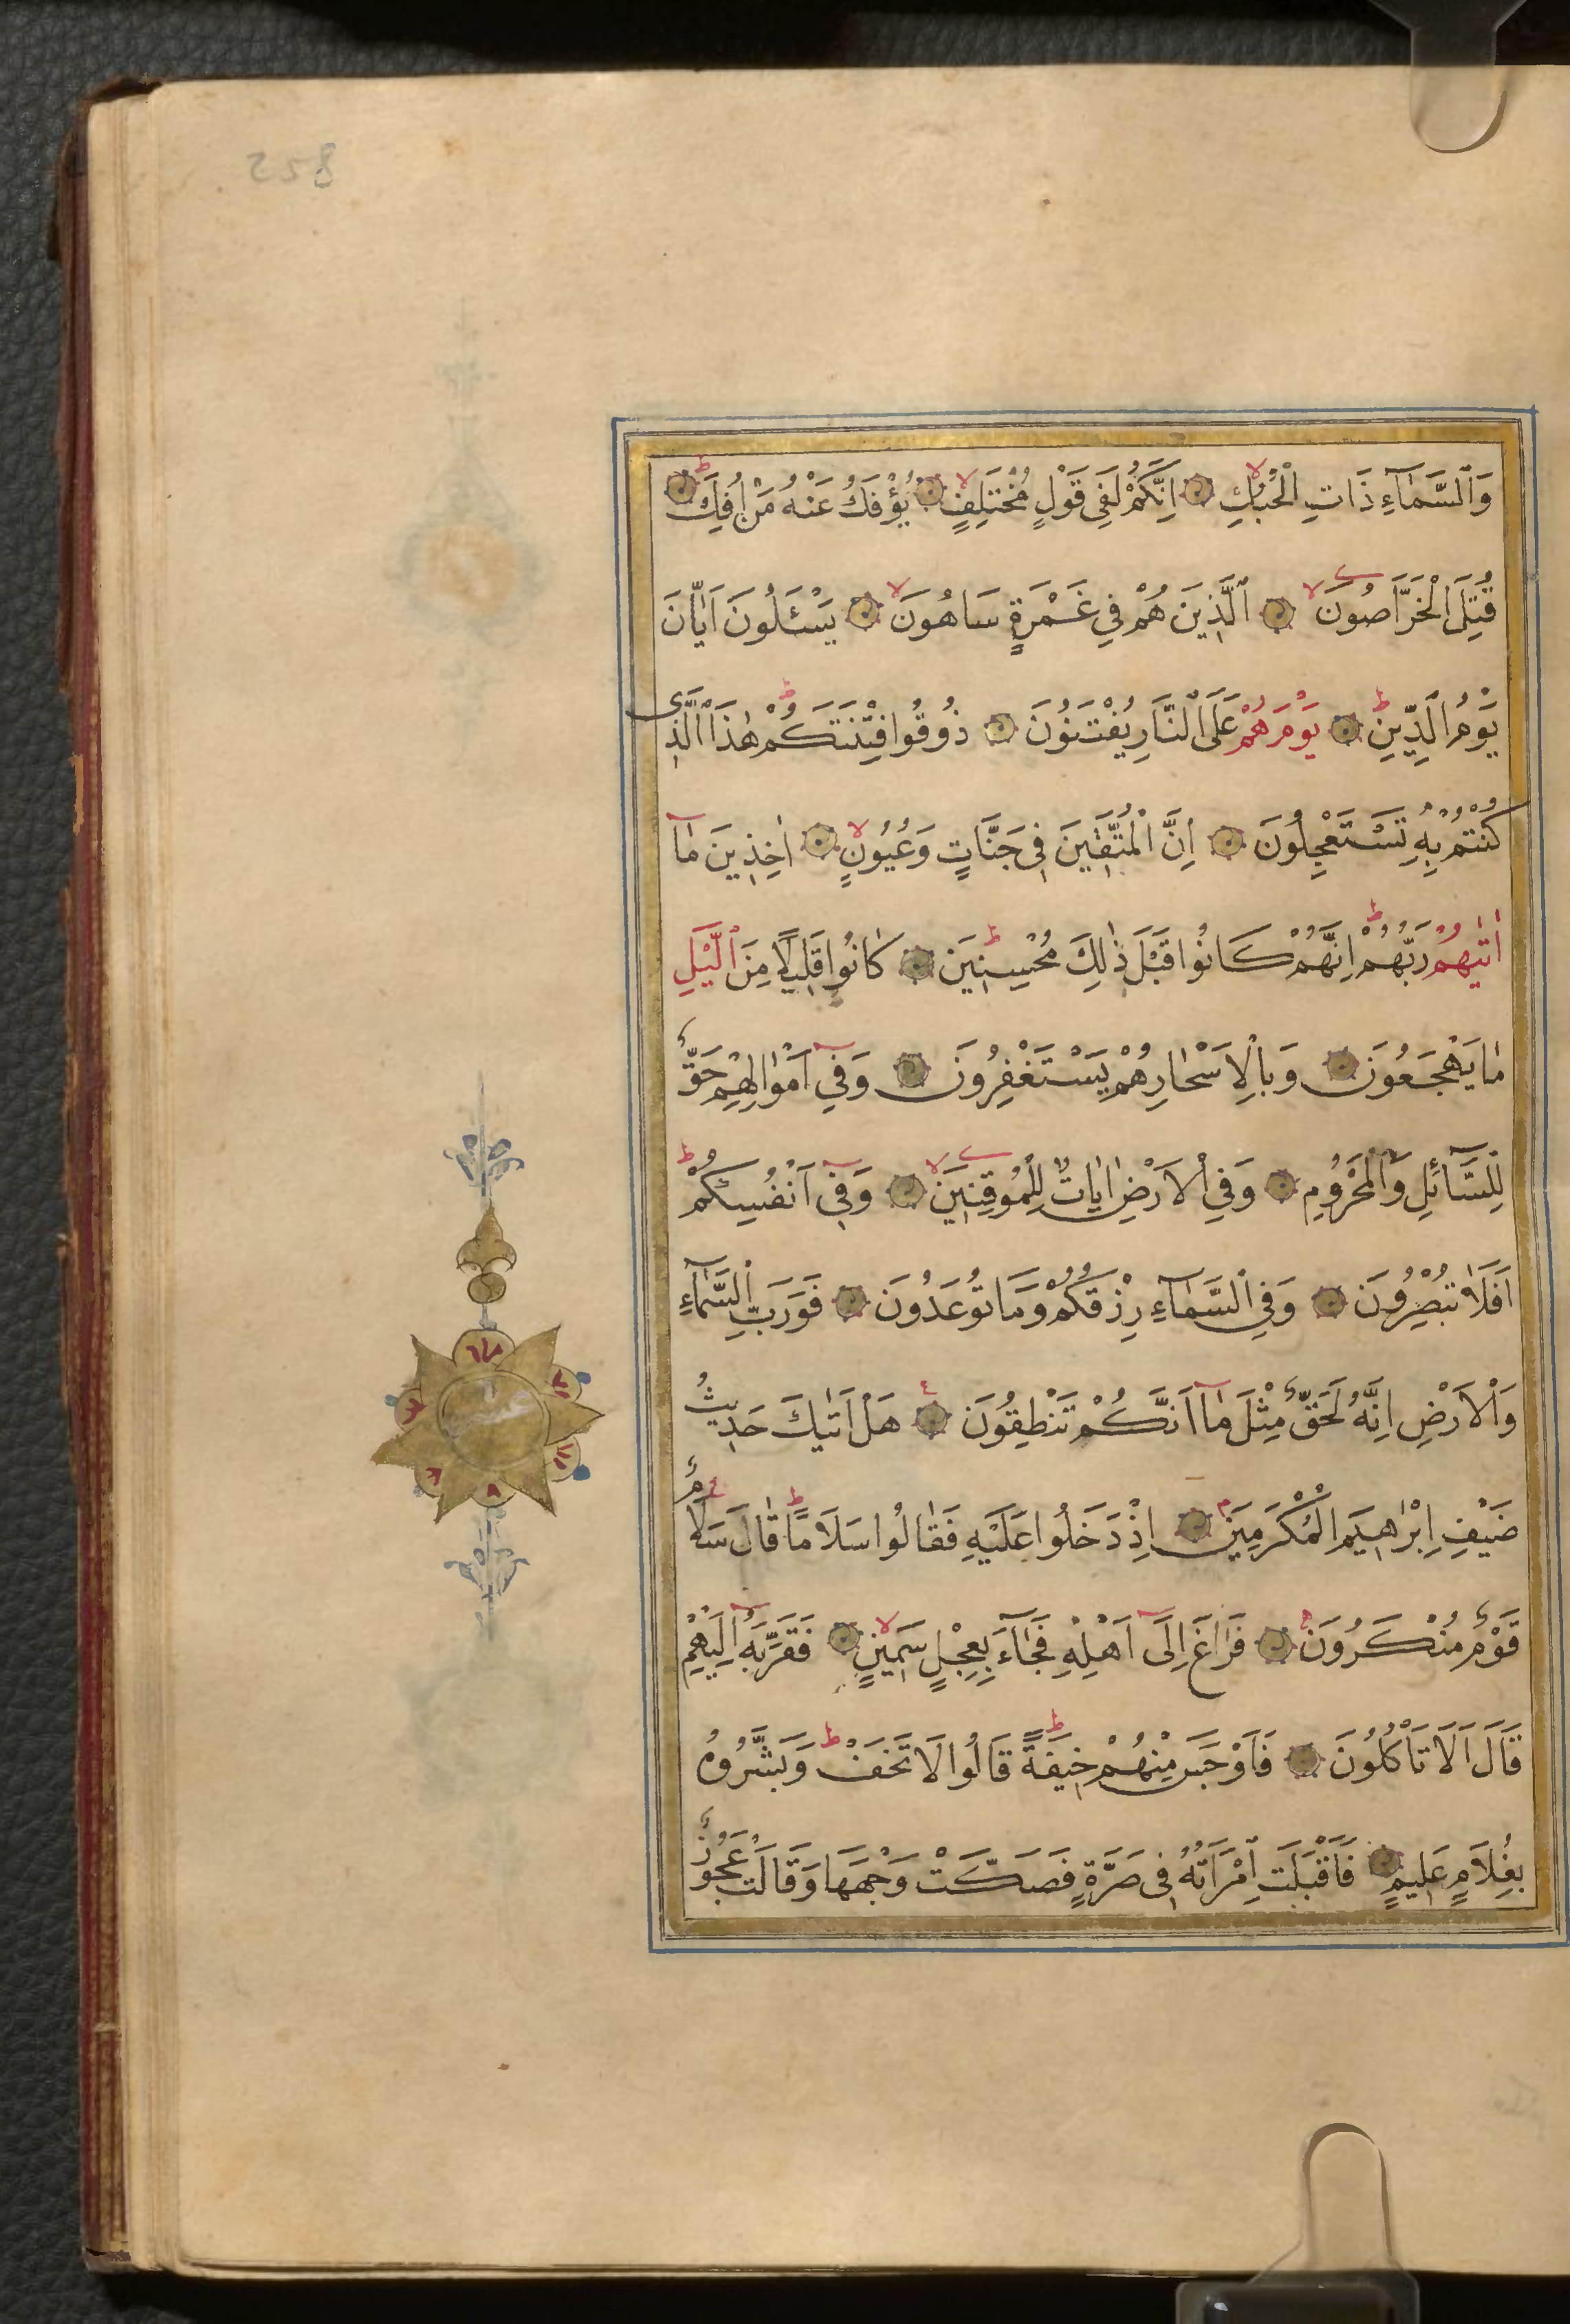 وَالسَّمَآءِ ذَاتِ الْحُبُكِ اِنَّكُمْ لَفِى قَوْلٍ مُخْتَلِفٍ يُؤْفَكُ عَنْهُ مَنْ اُفِكَ
قُتِلَ الْخَرَّاصُونَ اَلَّذِينَ هُمْ فِى غَمْرَةٍ سَاهُونَ يَسْئَلُونَ اَيَّانَ
يَوْمُ الدِّينِ يَوْمَ هُمْ عَلَى النَّارِ يُفْتَنُونَ ذُوقُوا فِتْنَتَكُمْ هٰذَا الَّذِى
كُنْتُمْ بِهٖ تَسْتَعْجِلُونَ اِنَّ الْمُتَّقِينَ فِى جَنَّاتٍ وَعُيُونٍ اٰخِذِينَ مَآ
اٰتٰيهُمْ رَبُّهُمْ اِنَّهُمْ كَانُوا قَبْلَ ذٰلِكَ مُحْسِنِينَ كَانُوا قَلِيلًا مِنَ الَّيْلِ
مَا يَهْجَعُونَ وَبِالْاَسْحَارِ هُمْ يَسْتَغْفِرُونَ وَفِىٓ اَمْوَالِهِمْ حَقٌّ
لِلسَّآئِلِ وَالْمَحْرُومِ وَفِى الْاَرْضِ اٰيَاتٌ لِلْمُوقِنِينَ وَفِىٓ اَنْفُسِكُمْ
اَفَلَا تُبْصِرُونَ وَفِى السَّمَآءِ رِزْقُكُمْ وَمَا تُوعَدُونَ فَوَرَبِّ السَّمَآءِ
وَالْاَرْضِ اِنَّهُ لَحَقٌّ مِثْلَ مَآ اَنَّكُمْ تَنْطِقُونَ هَلْ اَتٰيكَ حَدِيثُ
ضَيْفِ اِبْرٰهِيمَ الْمُكْرَمِينَ اِذْ دَخَلُوا عَلَيْهِ فَقَالُوا سَلَامًا قَالَ سَلَامٌ
قَوْمٌ مُنْكَرُونَ فَرَاغَ اِلَىٓ اَهْلِهٖ فَجَآءَ بِعِجْلٍ سَمِينٍ فَقَرَّبَهُٓ اِلَيْهِمْ
قَالَ اَلَا تَأْكُلُونَ فَاَوْجَسَ مِنْهُمْ خِيفَةً قَالُوا لَا تَخَفْ وَبَشَّرُوهُ
بِغُلَامٍ عَلِيمٍ فَاَقْبَلَتِ امْرَاَتُهُ فِى صَرَّةٍ فَصَكَّتْ وَجْهَهَا وَقَالَتْ عَجُوزٌ